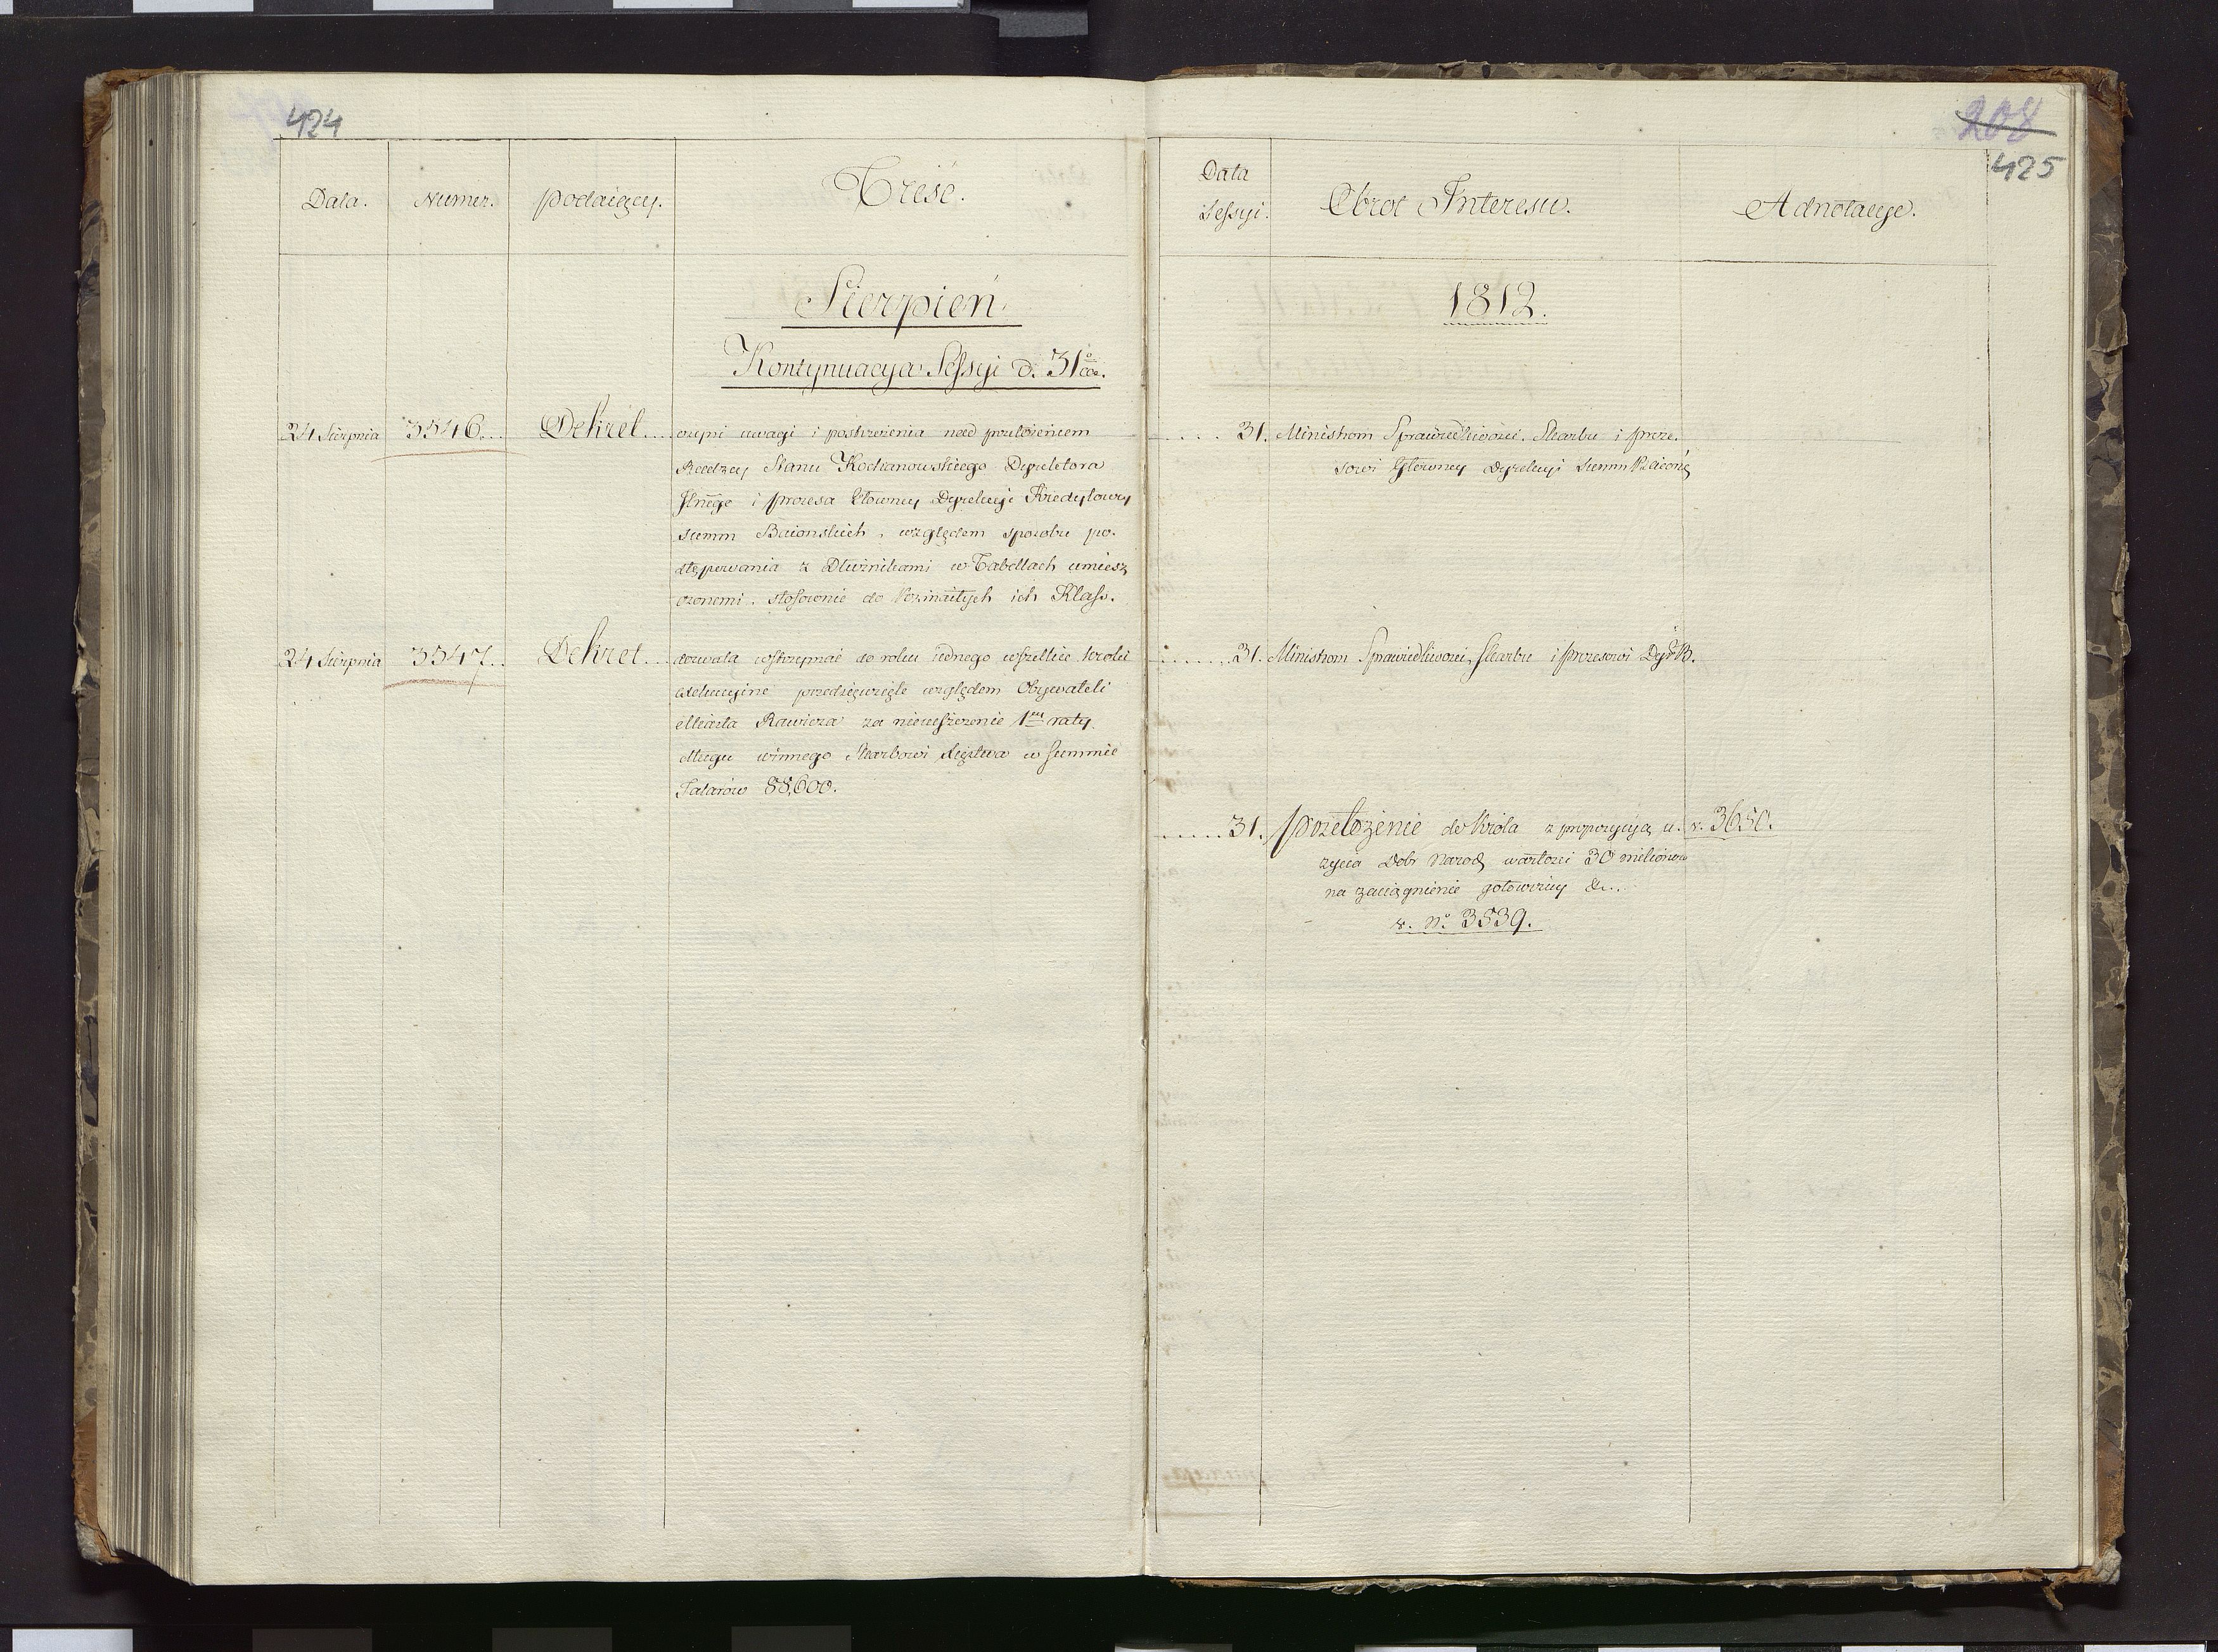 424
Data. Numer. Podaiący. Treść.
Sierpień
Kontynuacya Sessyi d. 31°
24 Sierpnia 3546. Dekret czyni uwagi i postrzeżenia nad przełożeniem
Radzcy Stanu Kochanowskiego Dyrektora
Jlnego i Prezesa Głowney Dyrekcyi Kredytowey
summ Baionskich, względem sposobu po-
stępowania z Dłużnikami w Tabellach umiesz
czonemi, stosownie do Rozmaitych ich Klass.
24 Sierpnia 3547. Dekret dozwala wstrzymać do roku iednego wszelkie kroki
exekucyine przedsięwzięte względem Obywateli
Miasta Rawicza za nieuiszczenie 1ey raty
długu winnego Skarbowi Xięstwa w Summie
Talarów 88,600.
208
425
Data Sessyi. Obrot Interesu. Adnotacye.
1812.
31. Ministrom Sprawiedliwości, Skarbu i Preze-
sowi Głowney Dyrekcyi Summ Baions
31. Ministrom Sprawiedliwości, Skarbu i Prezesowi Dyr B.
31. Przełożenie do Króla z propozycyą u- v. 3650.
życia Dobr Narod wartości 30 milionow
na zaciągnienie gotowizny &c..
v. No 3539.